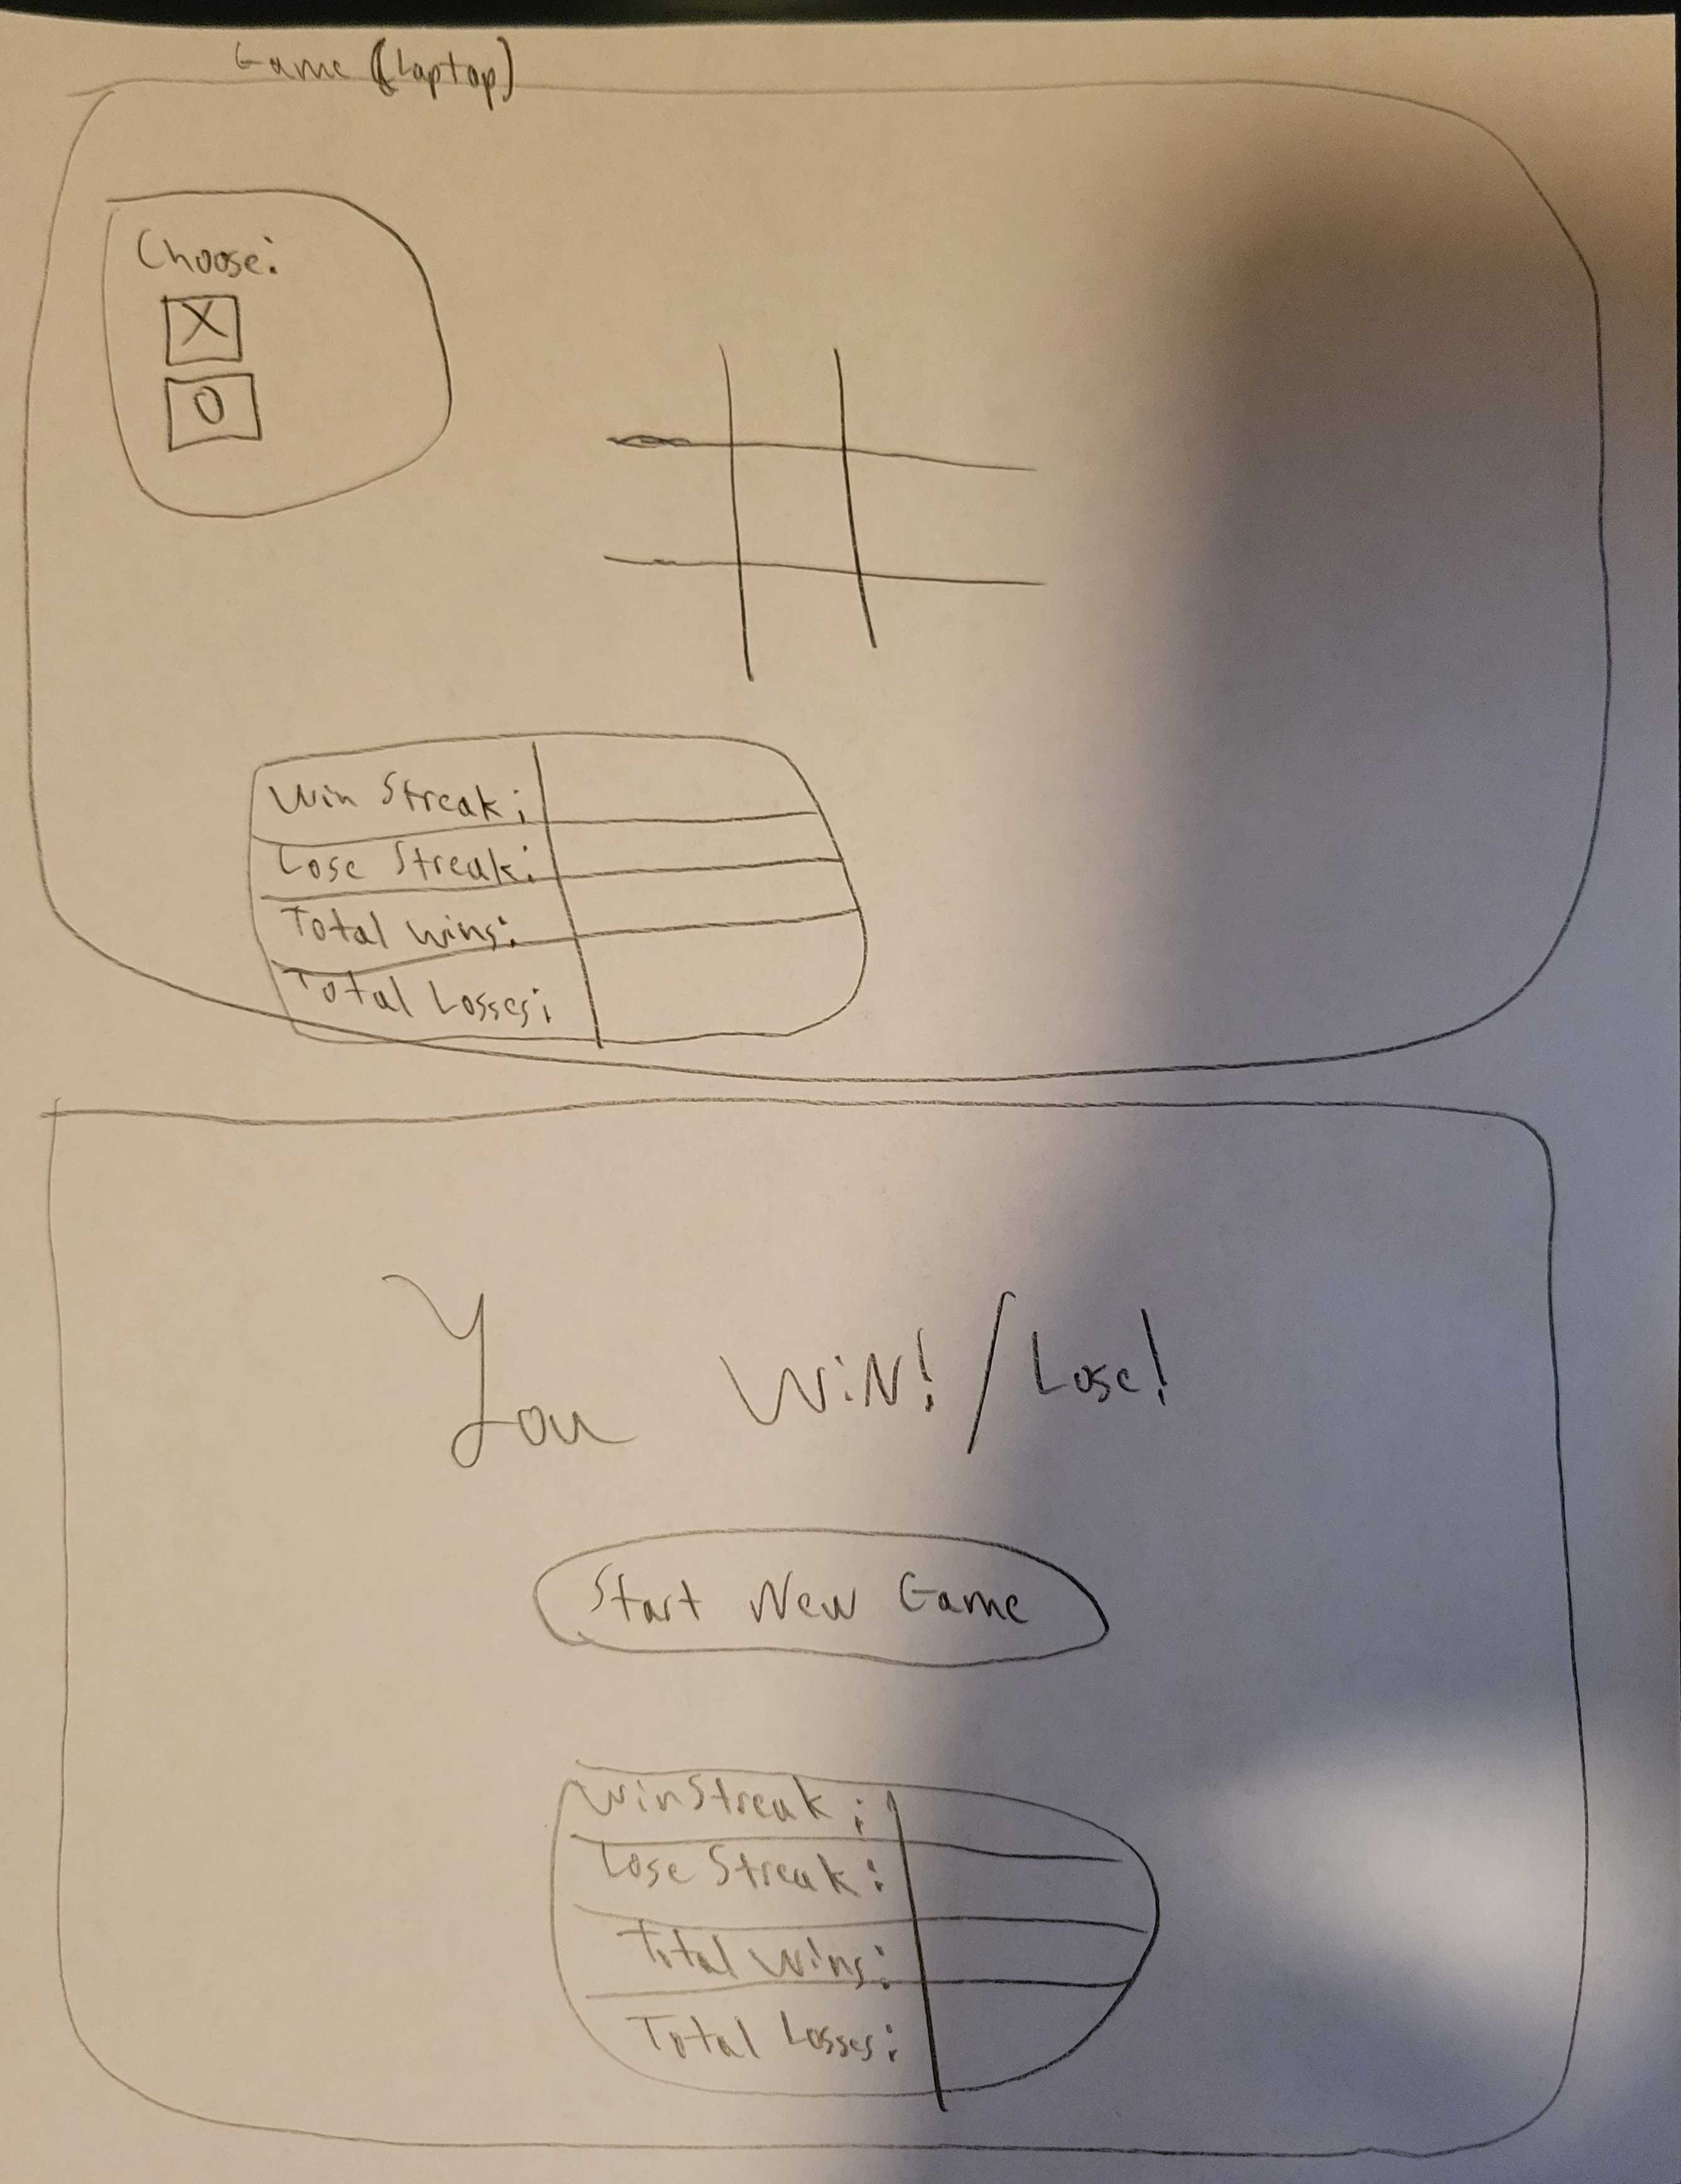 Game (Laptop)
Choose:
X
O
Win Streak:
Lose Streak:
Total Wins:
Total Losses:
You WiN! / Lose!
Start New Game
Win Streak:
Lose Streak:
Total Wins:
Total Losses: